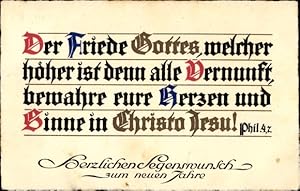 Der Friede Gottes, welcher
höher ist denn alle Vernunft,
bewahre eure Herzen und
Sinne in Christo Jesu! Phil. 4,7.
Herzlichen Segenswunsch
zum neuen Jahre